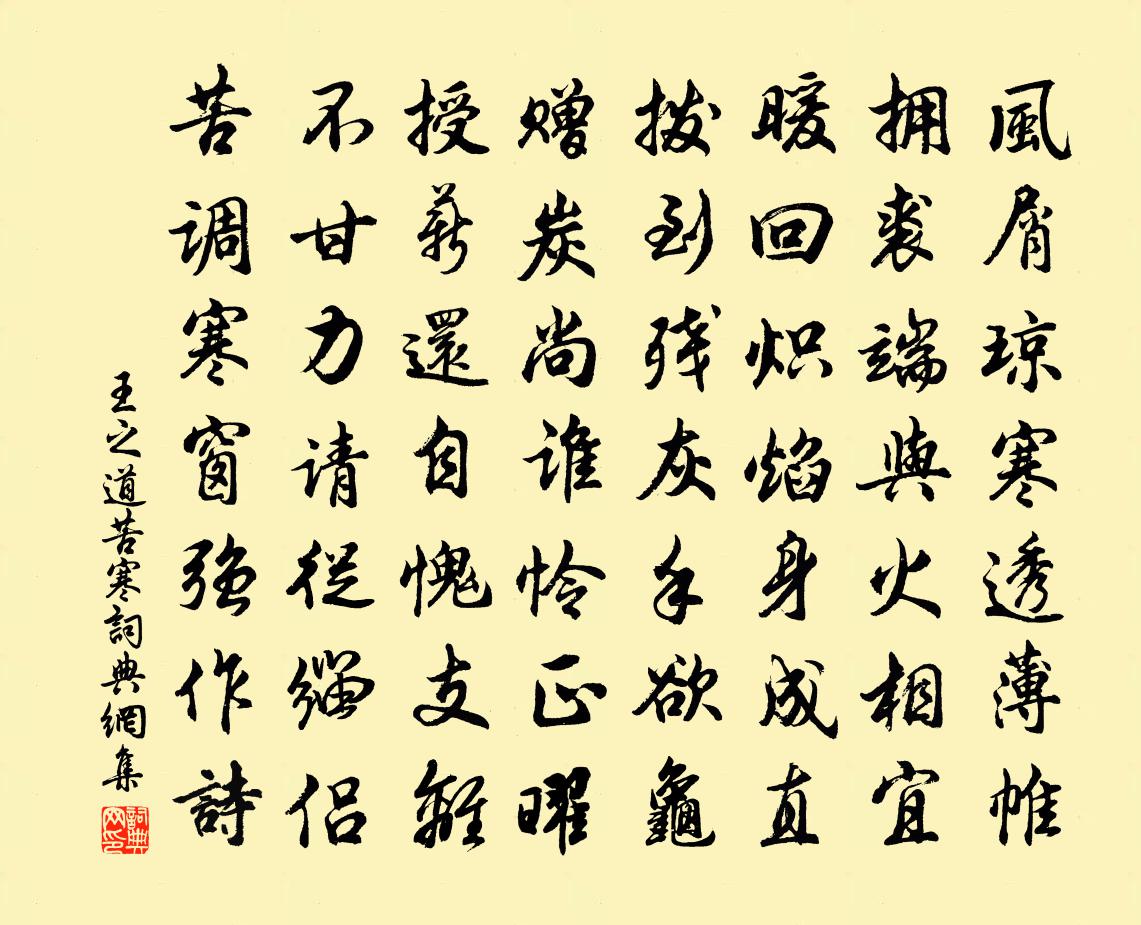 風屑琼寒透薄帷
拥裘端與火相宜
暖回炽焰身成直
拨到残灰手欲龜
赠炭尚谁怜正曜
授薪還自愧支離
不甘力请從緇侣
苦调寒窗強作詩
王之道苦寒詞典網集
詞典網印